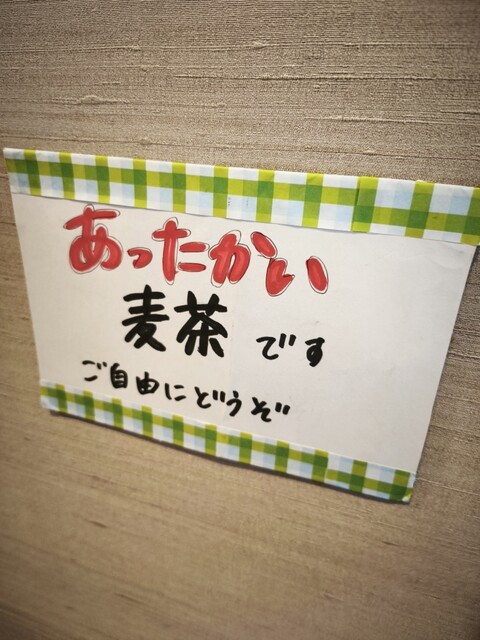 あったかい
麦茶です
ご自由にどうぞ